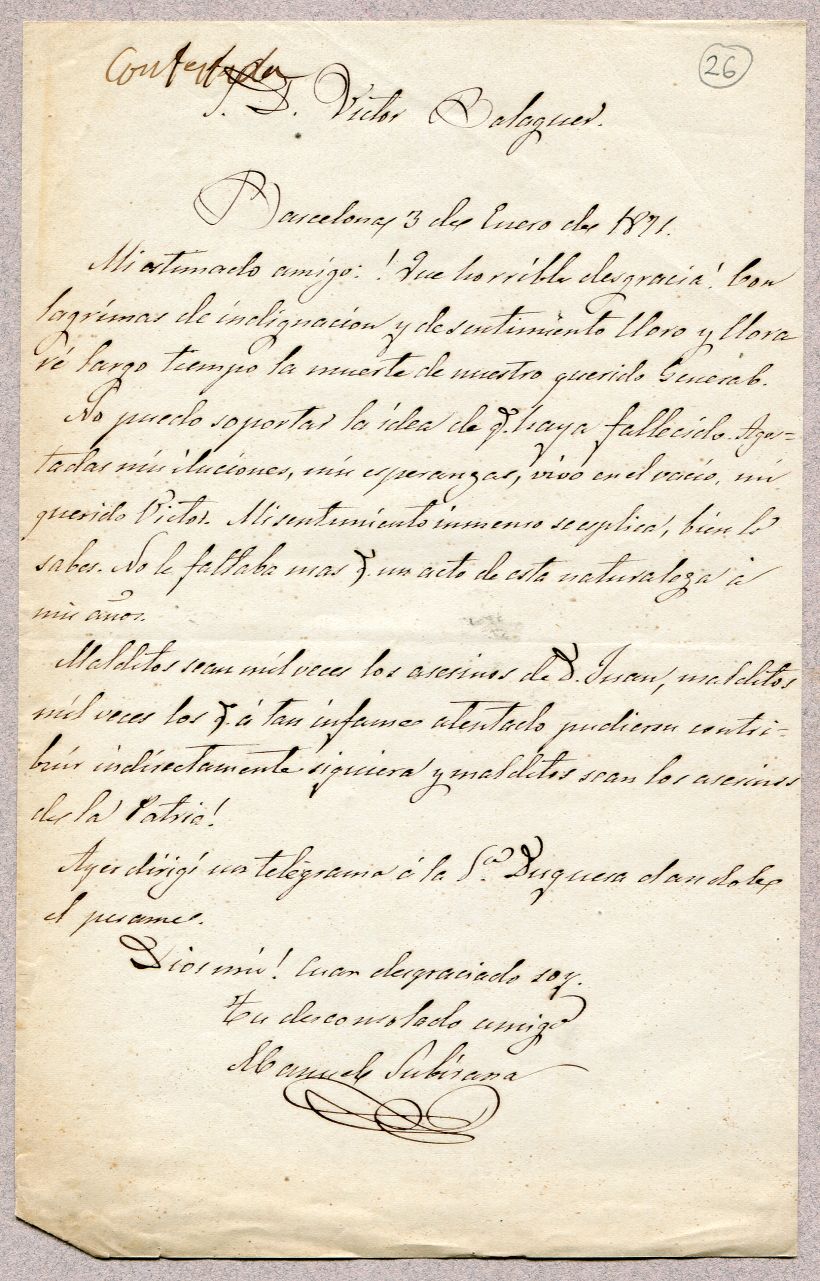 Contestada
26
S. D. Victor Balaguer.
Barcelona 3 de Enero de 1871.
Mi estimado amigo: ! Que horrible desgracia! Con
lagrimas de indignacion y de sentimiento lloro y llora
ré largo tiempo la muerte de nuestro querido General.
No puedo soportar la idea de q. haya fallecido. Ago=
tadas mis iluciones, mis esperanzas, vivo en el vacio, mi
querido Victor. Mi sentimiento inmenso se esplica, bien lo
sabes. No le faltaba mas q. un acto de esta naturaleza á
mis años.
Malditos sean mil veces los asesinos de D. Juan, malditos
mil veces los q. á tan infame atentado pudieron contri=
buir indirectamente siquiera y malditos sean los asesinos
de la Patria!
Ayer dirigí un telégrama á la S.ra Duquesa dandole
el pesame.
Dios mio! Cuan desgraciado soy.
Tu desconsolado amigo
Manuel Subirana